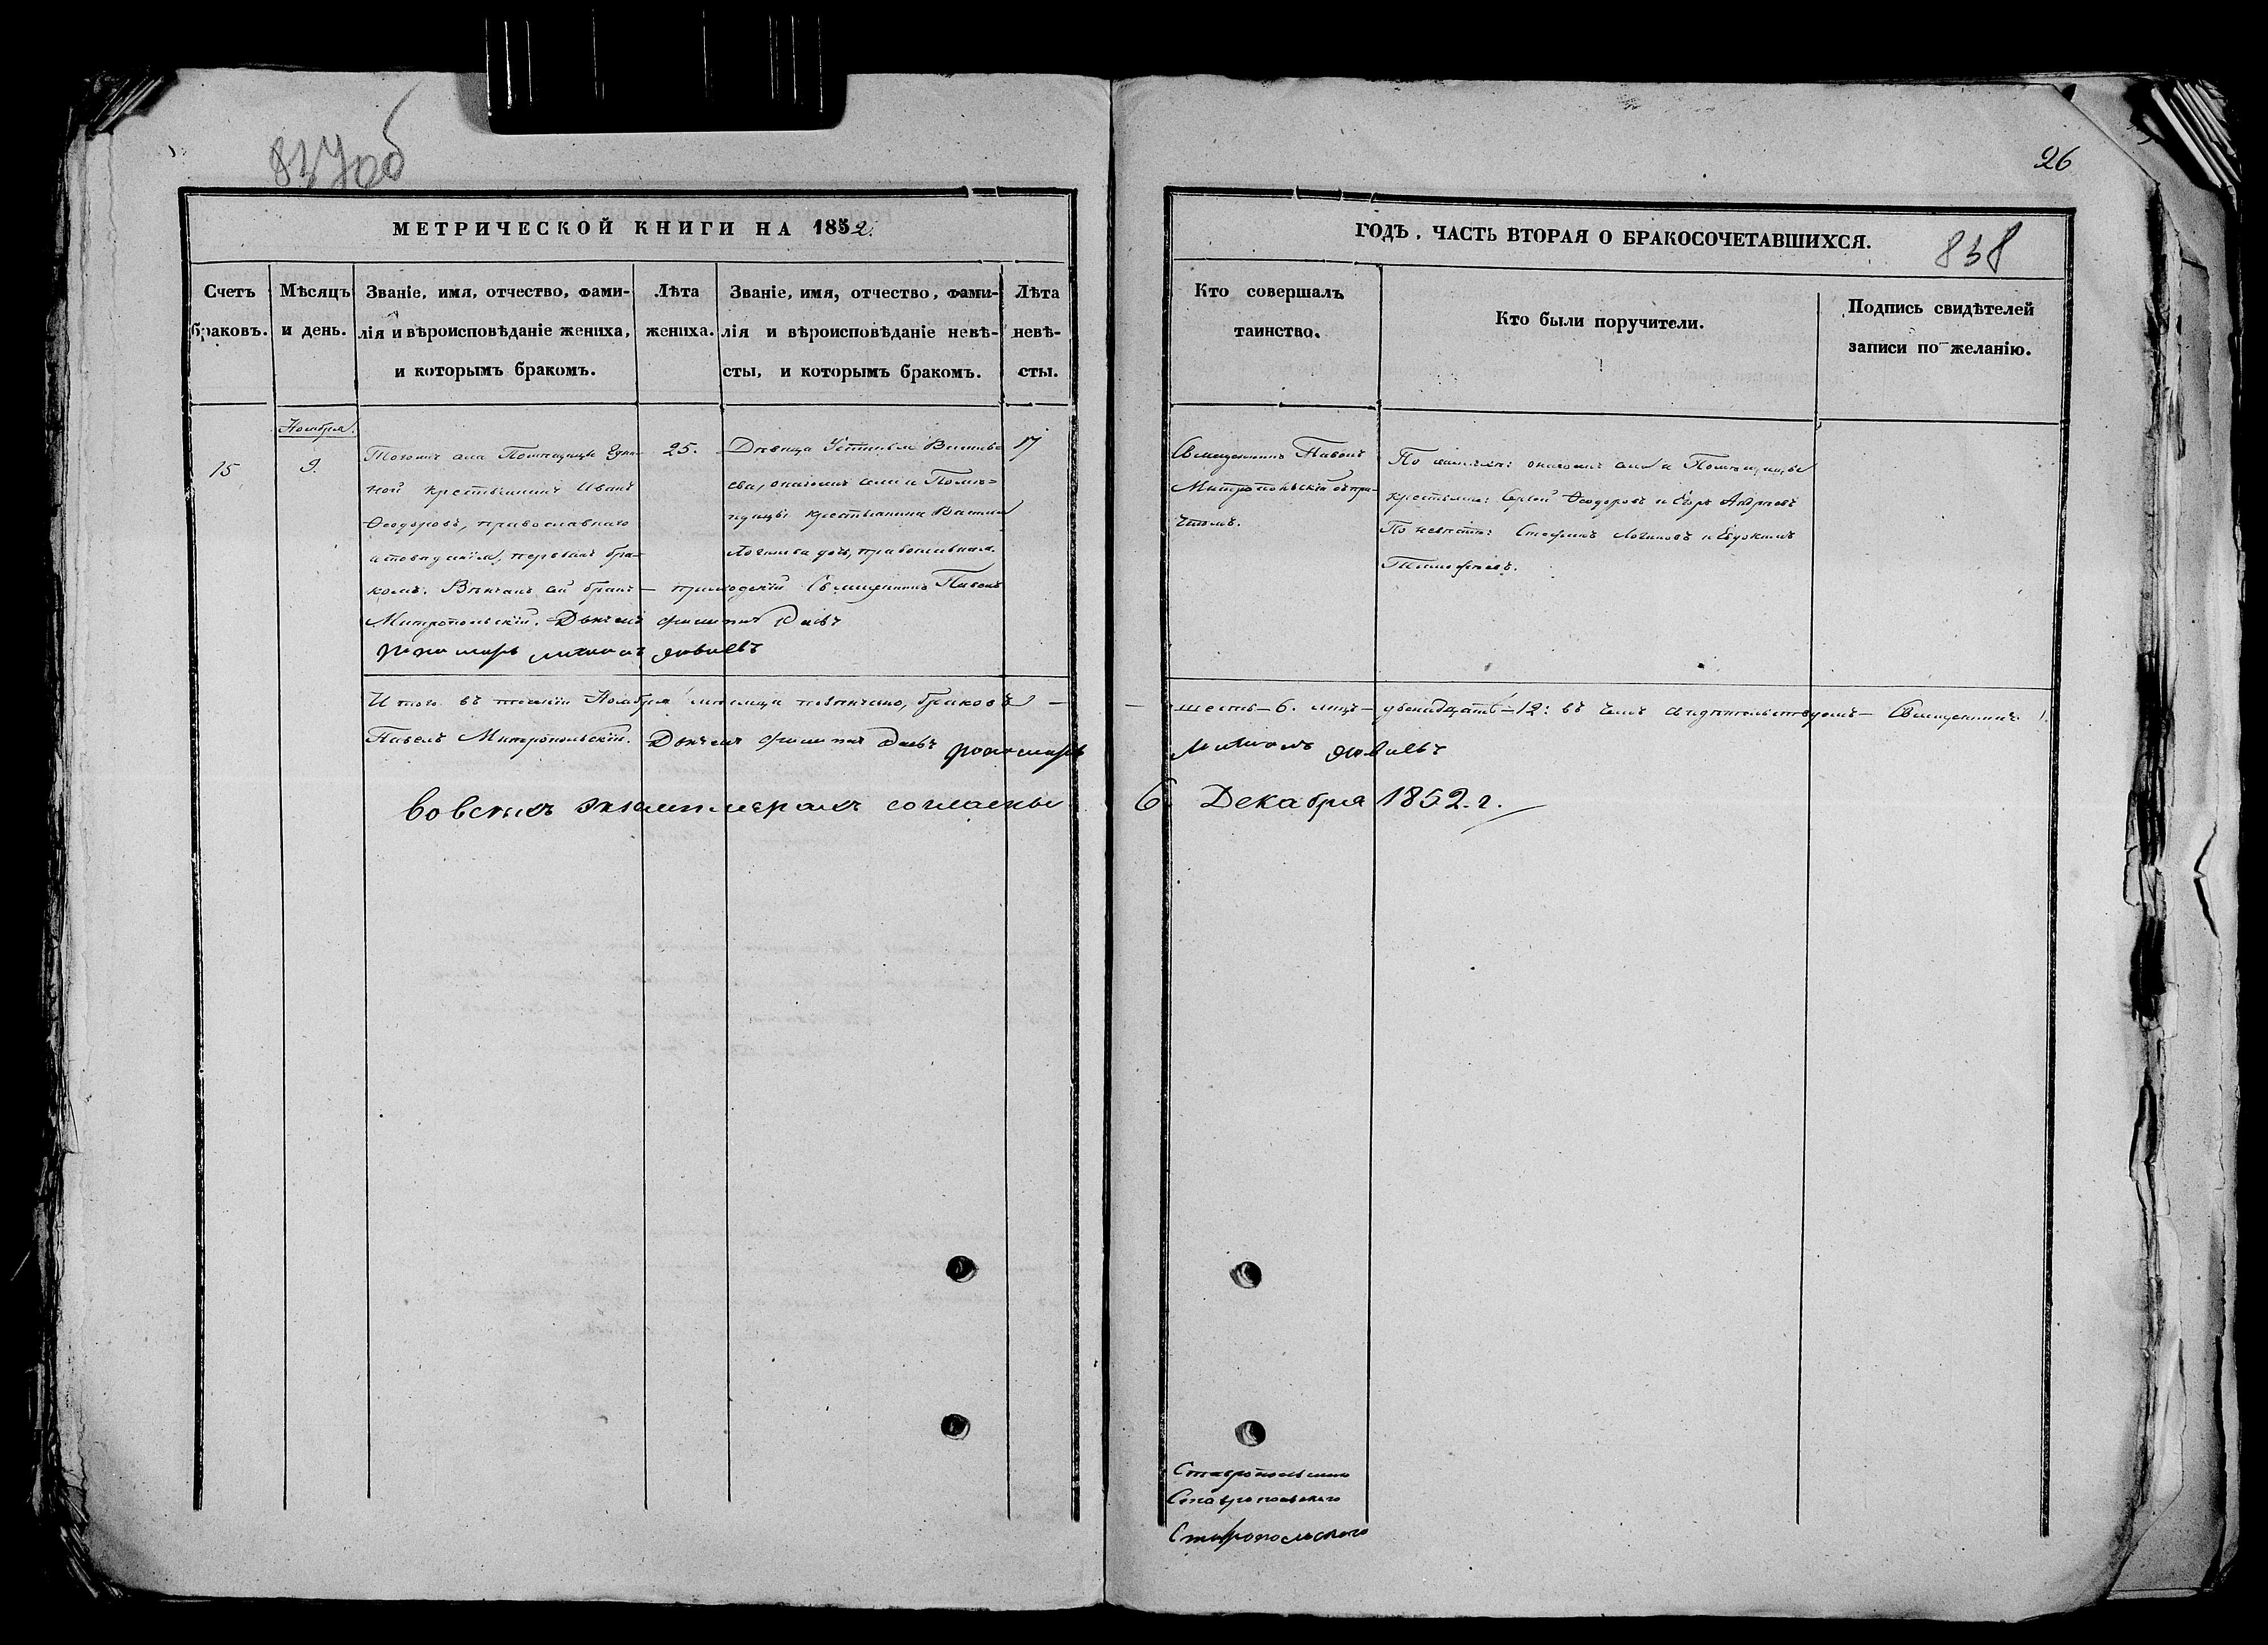 837об
26
МЕТРИЧЕСКОЙ КНИГИ НА 1852.
ГОДЪ. ЧАСТЬ ВТОРАЯ О БРАКОСОЧЕТАВШИХСЯ.
838
Счетъ
браковъ.
Мѣсяцъ
и день.
Званіе, имя, отчество, фами-
лія и вѣроисповѣданіе жениха,
и которымъ бракомъ.
Лѣта
жениха.
Званіе, имя, отчество, фами-
лія и вѣроисповѣданіе невѣ-
сты, и которымъ бракомъ.
Лѣта
невѣ-
сты.
Кто совершалъ
таинство.
Кто были поручители.
Подпись свидѣтелей
записи по желанію.
15
Ноября.
9.
Тогожъ села Помѣщицы
ной крестьянинъ Иванъ
Ѳеодоровъ, православнаго
исповѣданія, первымъ бра-
комъ. Вѣнчалъ сей бракъ – приходскій Священникъ Павелъ
Митропольскій. Дьячекъ
пономарь
25.
Дѣвица Устинья Василье
ева, онагожъ села и Помѣ-
щицы крестьянина Василья
Логинова дочь, православная.
17
Священникъ Павелъ
Митропольскій съ при-
чтомъ.
По женихѣ: онагожъ села и Помѣщицы
крестьяне: Сергѣй Ѳеодоровъ и Егоръ Андреевъ
По невѣстѣ: Стефанъ Логиновъ и Евдокимъ
Тимофеевъ.
Итого въ теченіи Ноября мѣсяца повѣнчано, браковъ – шесть – 6. лицъ – двенадцать – 12: въ чемъ свидѣтельствуемъ – Священникъ
Павелъ Митропольскій. Дьячекъ пономарь
Во всехъ экземплерахъ согласны 6 Декабря 1852. г.
Ставропольскаго
Ставропольскаго
Ставропольскаго